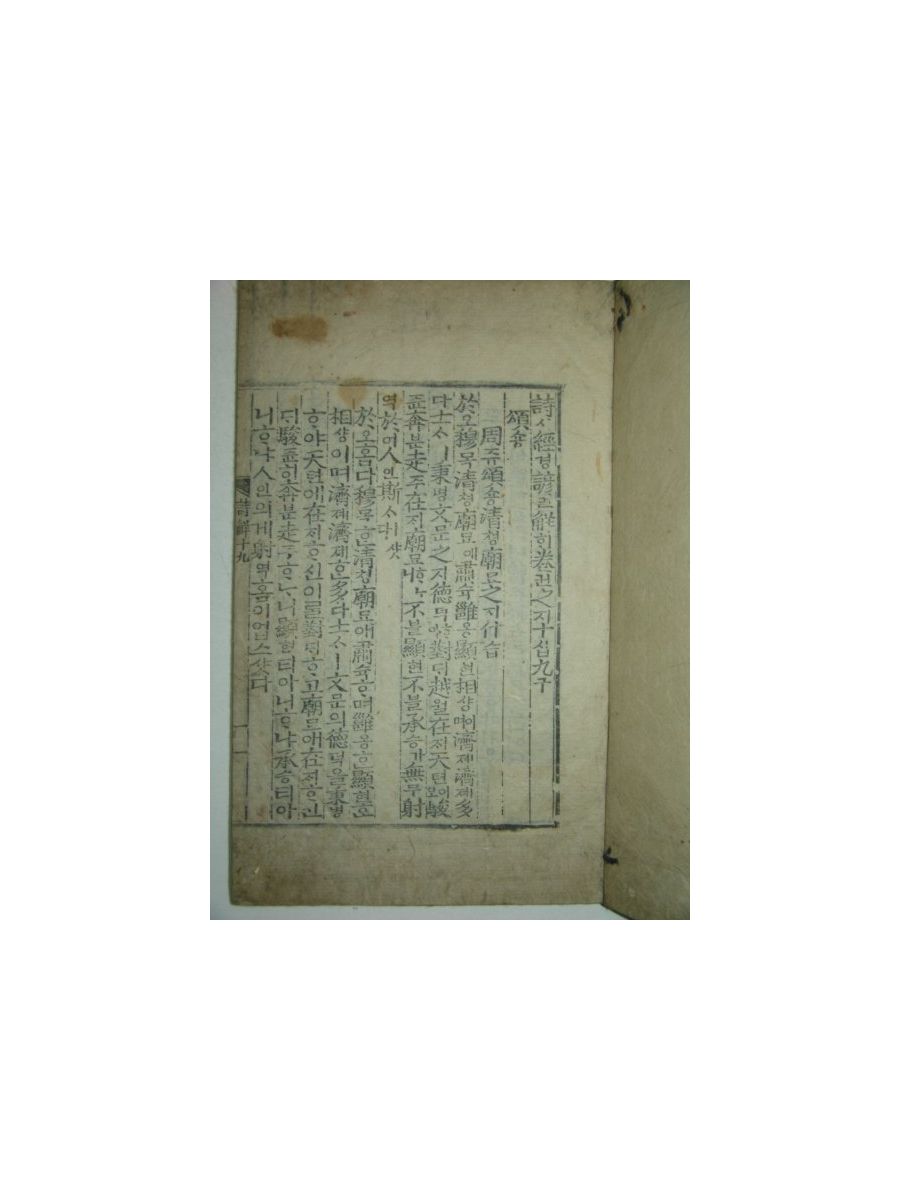 詩시經경諺언解ᄒᆡ卷권之지十십九구
頌숑
周쥬頌숑淸쳥廟묘之지什습
於오穆목淸쳥廟묘애肅슉雝옹顯현相샹이며濟졔濟졔多
다士ᄉᆞㅣ秉병文문之지德덕ᄒᆞ야對ᄃᆡ越월在ᄌᆡ天텬이오駿
쥰奔분走주在ᄌᆡ廟묘ᄒᆞᄂᆞ니不블顯현不블承승가無무射
역於어人인斯ᄉᆞ샷다
於오홉다穆목ᄒᆞᆫ淸쳥廟묘애肅슉ᄒᆞ며雝옹ᄒᆞᆫ顯현ᄒᆞᆫ
相샹이며濟졔濟졔ᄒᆞᆫ多다士ᄉᆞㅣ文문의德덕을秉병
ᄒᆞ야天텬에在ᄌᆡᄒᆞ신이ᄅᆞᆯ對ᄃᆡᄒᆞ고廟묘애在ᄌᆡᄒᆞ신
ᄃᆡ駿쥰히奔분走주ᄒᆞᄂᆞ니顯현티아닌ᄂᆞ냐承승티아
니ᄒᆞ냐人인의게射역홈이업스샷다
詩解十九